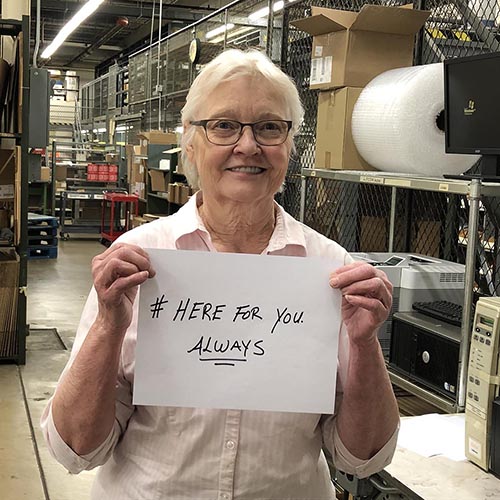 # HERE FOR YOU.
ALWAYS